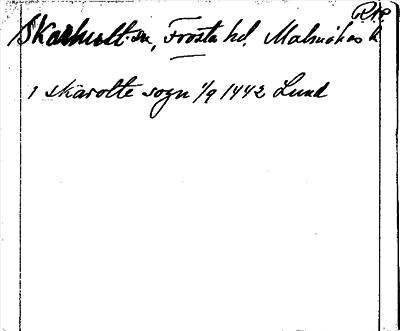 P.N.
Skarhult sn, Frosta hd. Malmöhus l.
i skarolte sogn 1/9 1442 Lund